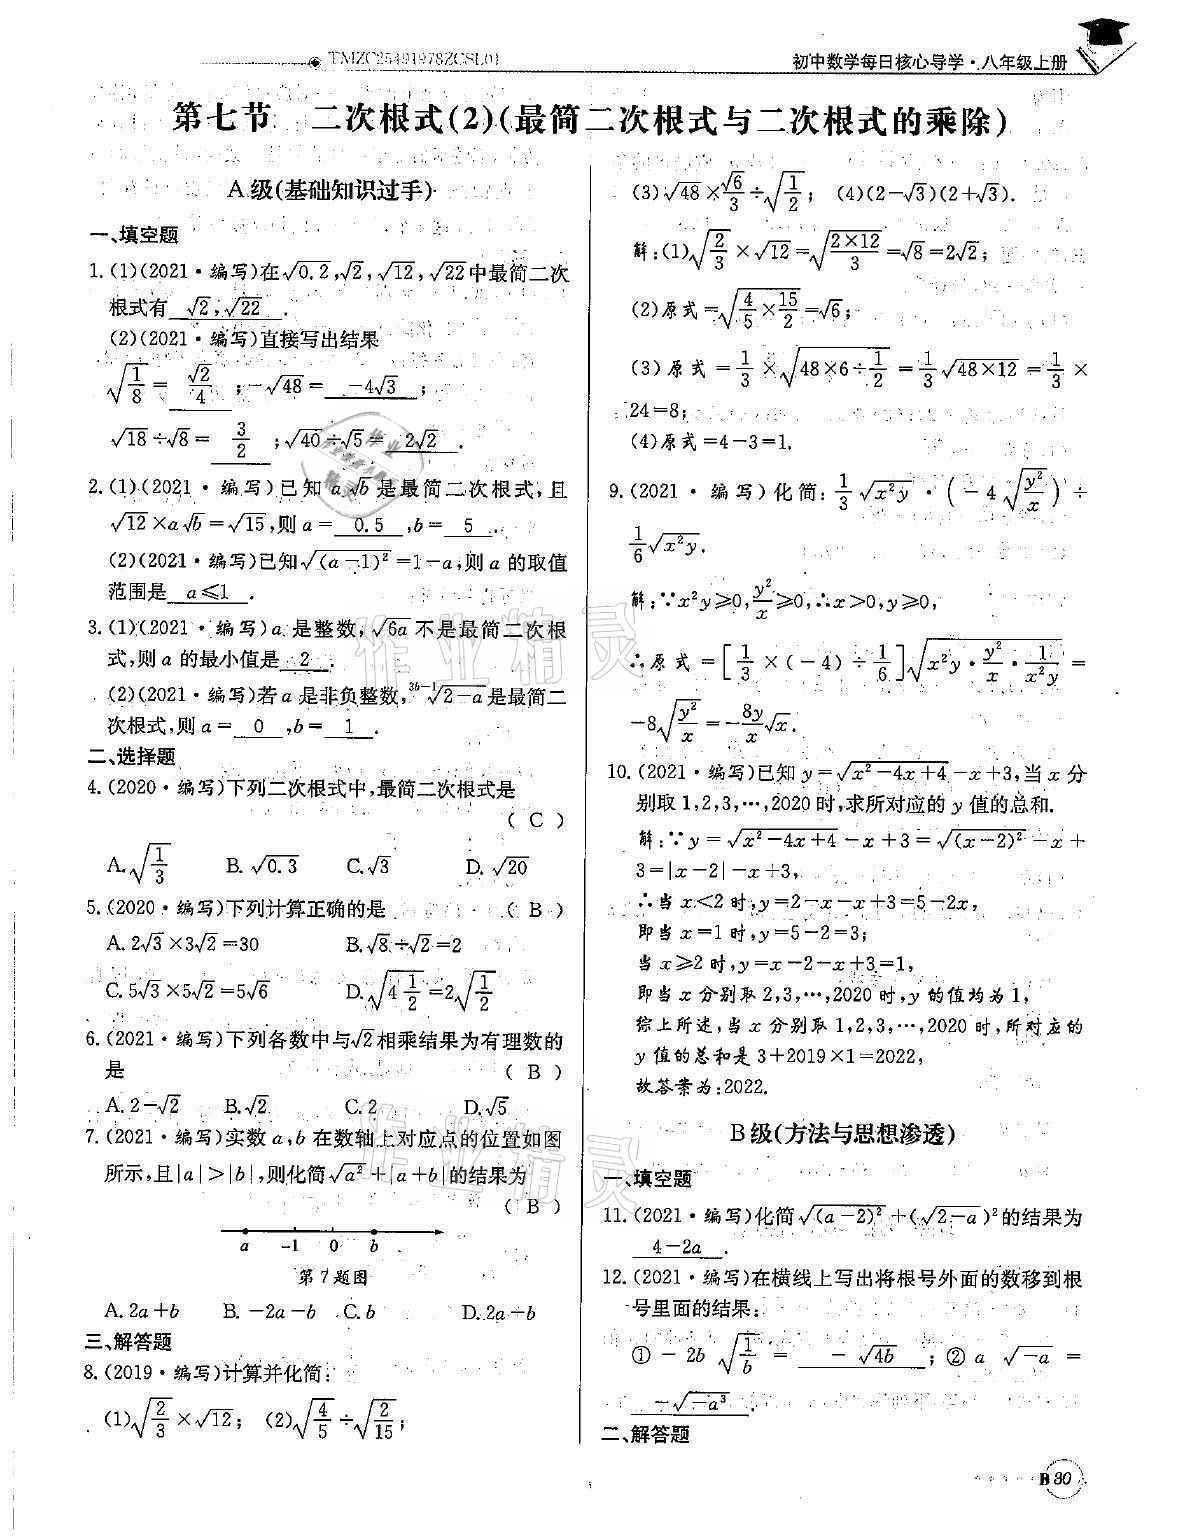 TMZC25491978ZCSL01
初中数学每日核心导学·八年级上册
第七节 二次根式(2)(最简二次根式与二次根式的乘除)
A级(基础知识过手)
一、填空题
1.(1)(2021·编写)在√0.2,√2,√12,√22中最简二次
根式有 √2,√22 .
(2)(2021·编写)直接写出结果
√(1/8)= √2/4 ;-√48= -4√3 ;
√18÷√8= 3/2 ;√40÷√5= 2√2 .
2.(1)(2021·编写)已知a√b是最简二次根式,且
√12×a√b=√15,则a= 0.5 ,b= 5 .
(2)(2021·编写)已知√(a-1)²=1-a,则a的取值
范围是 a≤1 .
3.(1)(2021·编写)a是整数,√6a不是最简二次根
式,则a的最小值是 2 .
(2)(2021·编写)若a是非负整数,³ᵇ⁻¹√2-a是最简二
次根式,则a= 0 ,b= 1 .
二、选择题
4.(2020·编写)下列二次根式中,最简二次根式是
( C )
A.√(1/3) B.√0.3 C.√3 D.√20
5.(2020·编写)下列计算正确的是 ( B )
A.2√3×3√2=30 B.√8÷√2=2
C.5√3×5√2=5√6 D.√(4 1/2)=2√(1/2)
6.(2021·编写)下列各数中与√2相乘结果为有理数的
是 ( B )
A.2-√2 B.√2 C.2 D.√5
7.(2021·编写)实数a,b在数轴上对应点的位置如图
所示,且|a|>|b|,则化简√a²+|a+b|的结果为
( B )
a -1 0 b
第7题图
A.2a+b B.-2a-b C.b D.2a-b
三、解答题
8.(2019·编写)计算并化简:
(1)√(2/3)×√12; (2)√(4/5)÷√(2/15);
(3)√48×√6/3÷√(1/2); (4)(2-√3)(2+√3).
解:(1)√(2/3)×√12=√((2×12)/3)=√8=2√2;
(2)原式=√(4/5×15/2)=√6;
(3)原式=1/3×√(48×6÷1/2)=1/3√(48×12)=1/3×
24=8;
(4)原式=4-3=1.
9.(2021·编写)化简:1/3√(x²y)·(-4√(y²/x))÷
1/6√(x²y).
解:∵x²y≥0,y²/x≥0,∴x>0,y≥0,
∴原式=[1/3×(-4)÷1/6]√(x²y·y²/x·1/(x²y))=
-8√(y²/x)=-8y/x√x.
10.(2021·编写)已知y=√(x²-4x+4)-x+3,当x分
别取1,2,3,…,2020时,求所对应的y值的总和.
解:∵y=√(x²-4x+4)-x+3=√(x-2)²-x+
3=|x-2|-x+3,
∴当x<2时,y=2-x-x+3=5-2x,
即当x=1时,y=5-2=3;
当x≥2时,y=x-2-x+3=1,
即当x分别取2,3,…,2020时,y的值均为1,
综上所述,当x分别取1,2,3,…,2020时,所对应的
y值的总和是3+2019×1=2022,
故答案为:2022.
B级(方法与思想渗透)
一、填空题
11.(2021·编写)化简√(a-2)²+(√(2-a))²的结果为
4-2a .
12.(2021·编写)在横线上写出将根号外面的数移到根
号里面的结果:
①-2b√(1/b)= -√4b ;②a√-a=
-√-a³ .
二、解答题
B 80
作业精灵
作业精灵